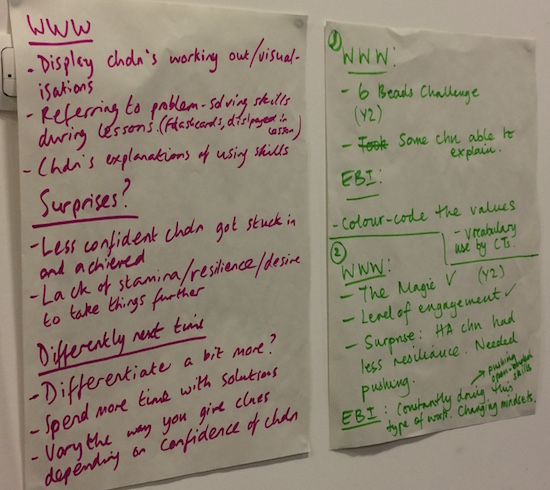 WWW
- Display chdn's working out/visual-
isations
- Referring to problem-solving skills
during lessons. (Flashcards, displayed in
lesson)
- Chdn's explanations of using skills
Surprises?
- Less confident chdn got stuck in
and achieved
- Lack of stamina/resilience/desire
to take things further
Differently next time
- Differentiate a bit more?
- Spend more time with solutions
- Vary the way you give clues
depending on confidence of chdn
1 WWW:
- 6 Beads Challenge
(Y2)
- Took Some chn able to
explain.
EBI:
- Colour-code the values
- Vocabulary
use by CTs.
2
WWW:
- The Magic V (Y2)
- Level of engagement ✓
- Surprise: HA chn had
less resiliance. Needed
pushing.
EBI: Constantly doing this
type of work. Changing mindsets.
→ pushing
open-ended
skills